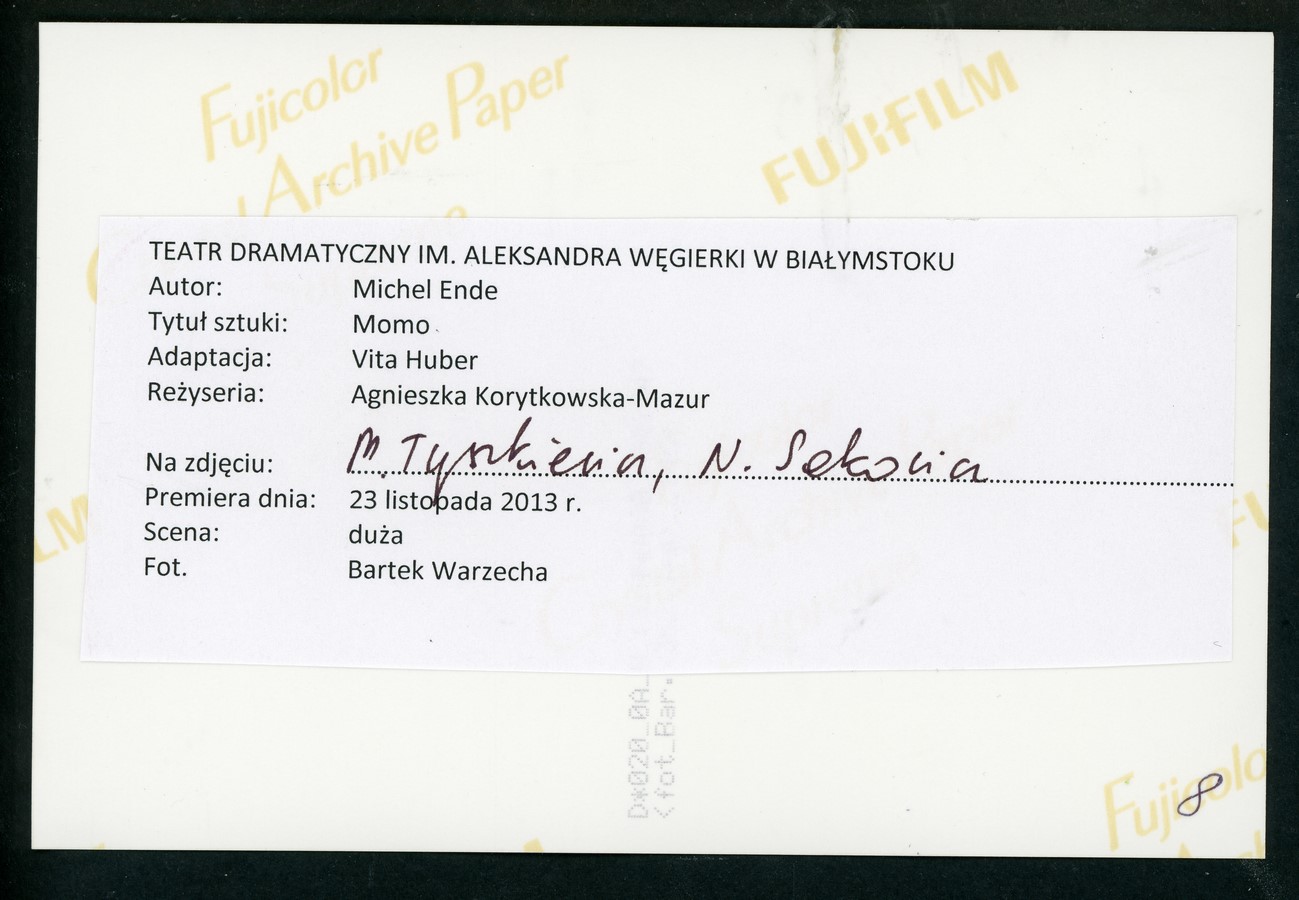 Fujicolor
Archive Paper
FUJIFILM
TEATR DRAMATYCZNY IM. ALEKSANDRA WĘGIERKI W BIAŁYMSTOKU
Autor: Michel Ende
Tytuł sztuki: Momo
Adaptacja: Vita Huber
Reżyseria: Agnieszka Korytkowska-Mazur
Na zdjęciu: M. Tyszkiewicz, N. Sakowicz
Premiera dnia: 23 listopada 2013 r.
Scena: duża
Fot. Bartek Warzecha
D*020_0A_
<fot_Bar.
Fujicolo
8